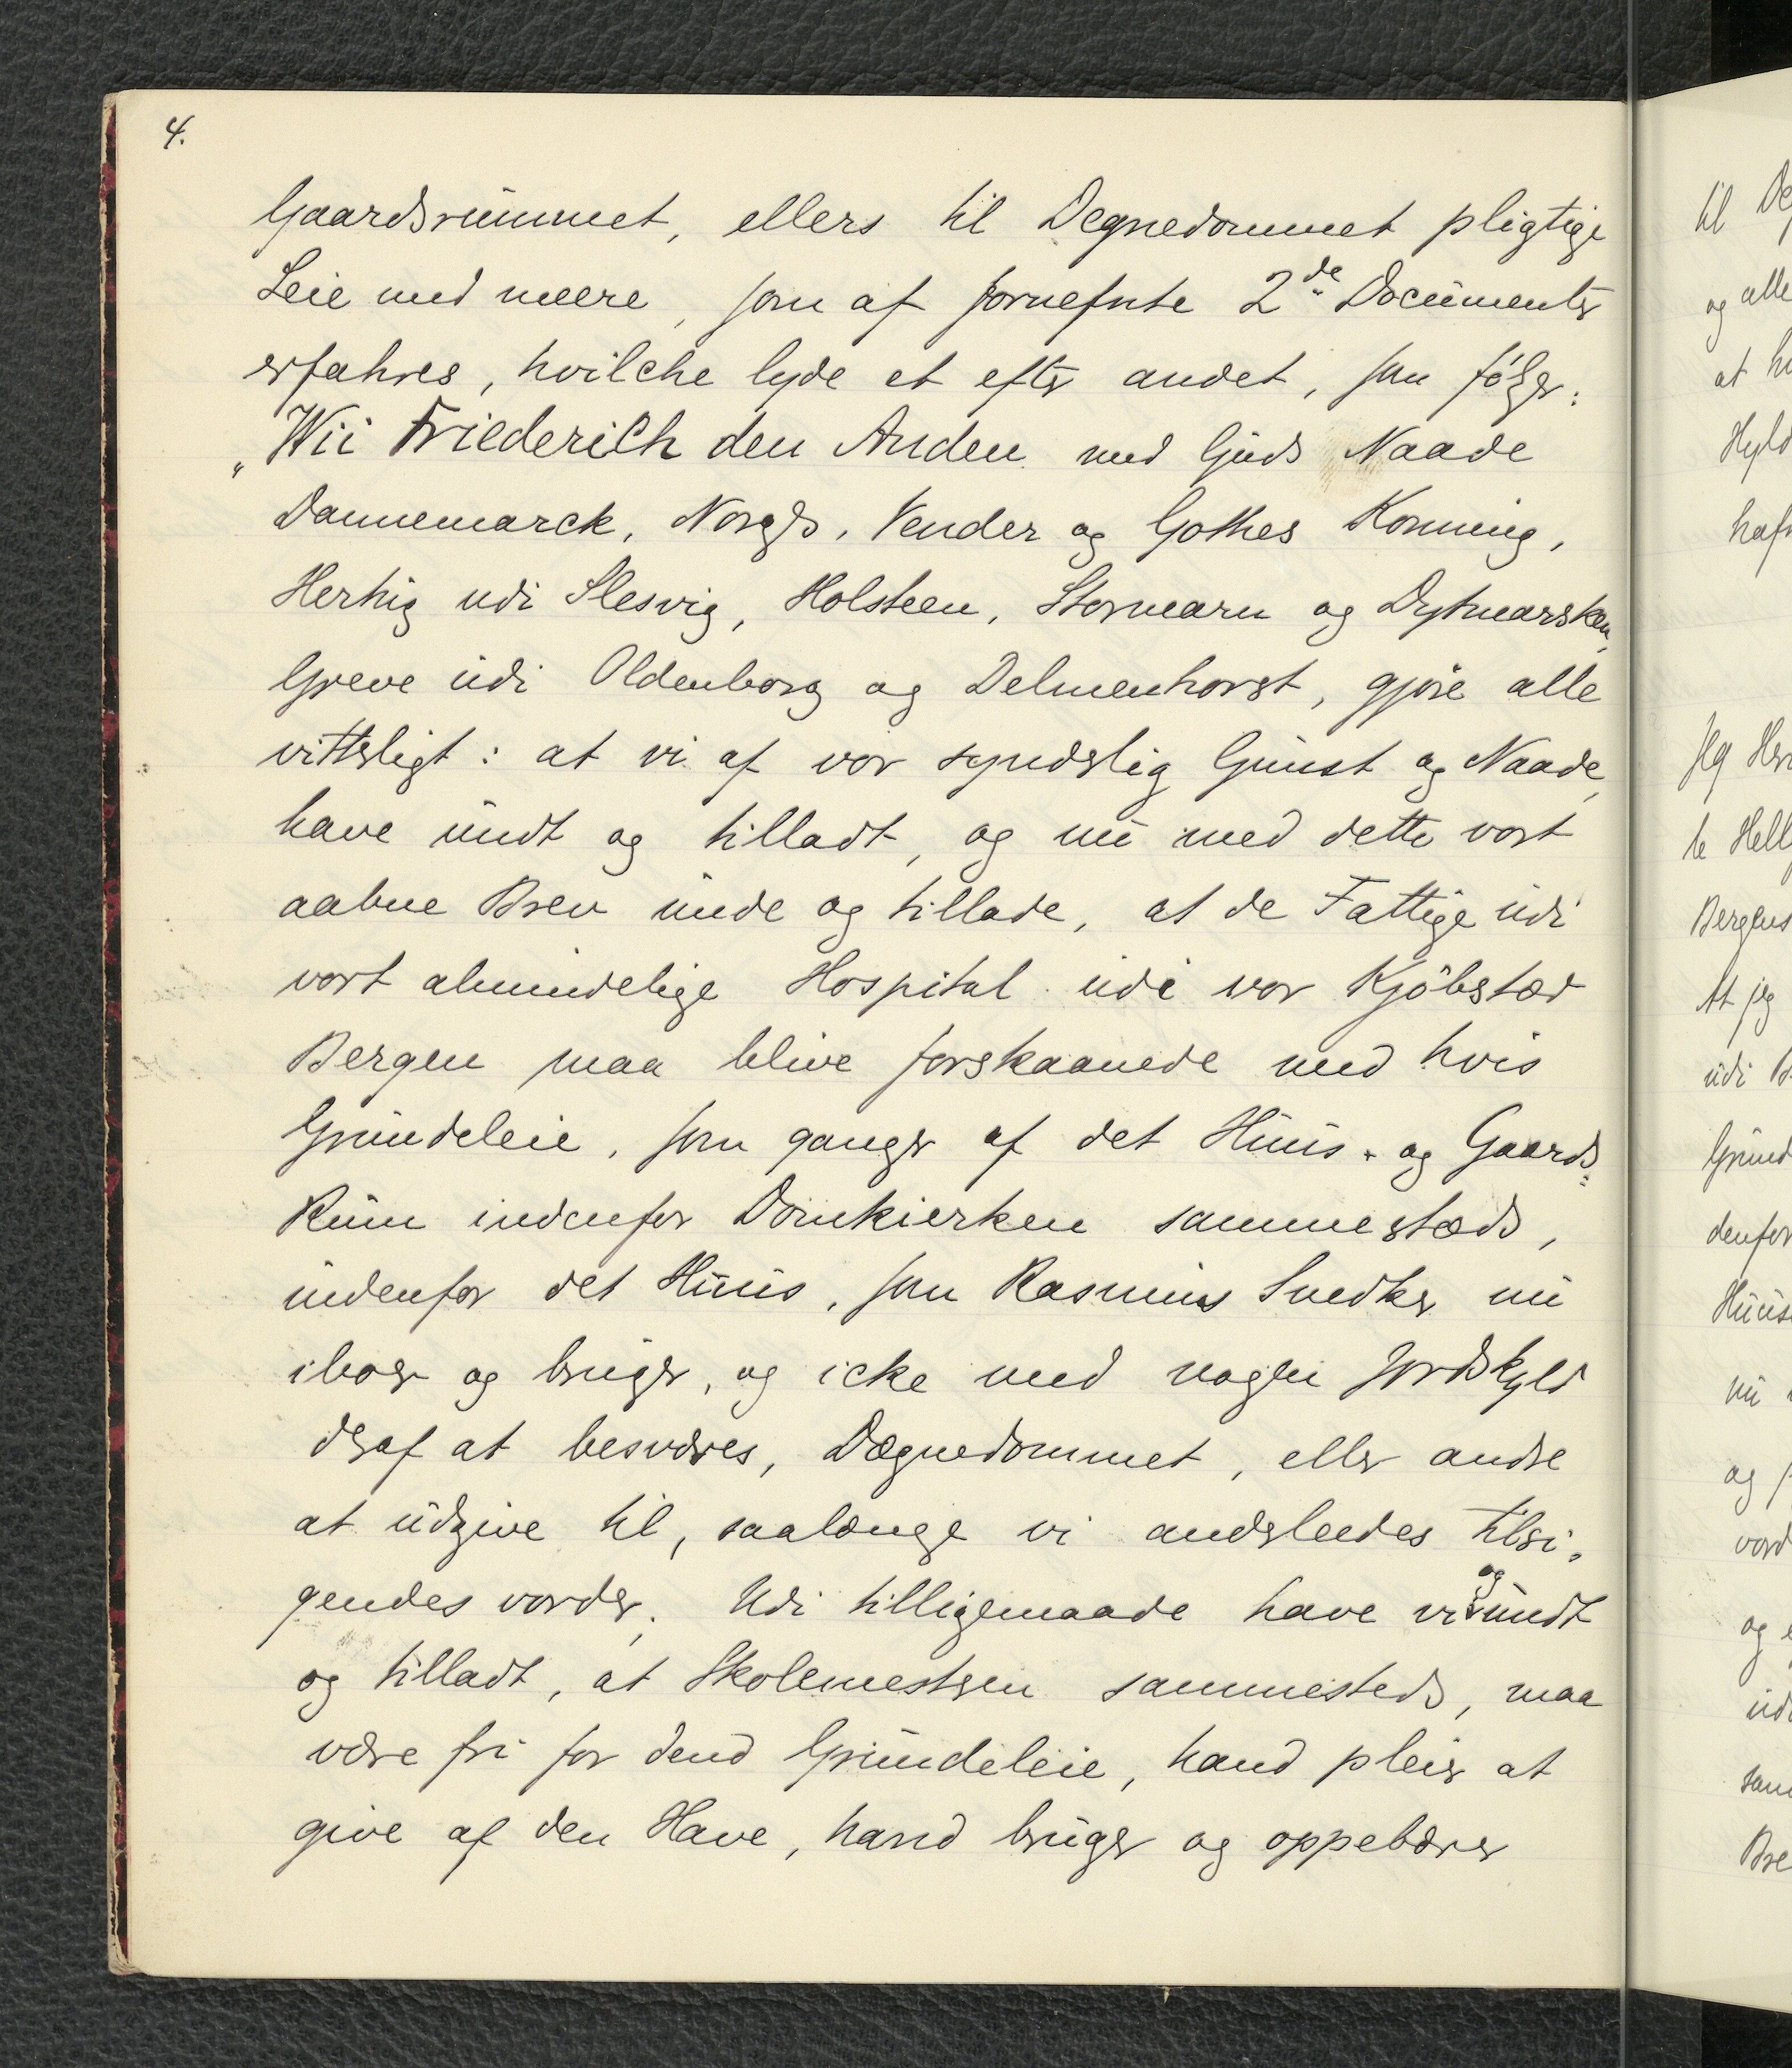 4.
Gaardsrummet, ellers til Degnedommet pligtige
Leie med meere, som af fornefnte 2de Documenter
erfahres, hvilche lyde et efter andet, som følger:
"Wii Friederich den Anden med Guds Naade
Dannemarck, Norges, Vender og Gothes Konning,
Hertig udi Slesvig, Holsteen, Stormarn og Dytmarsken,
Greve udi Oldenborg og Delmenhorst, gjøre alle
vitterligt: at vi af vor synderlig Gunst og Naade,
have undt og tilladt, og nu med dette vort
aabne Brev unde og tillade, at de Fattige udi
vort almindelige Hospital udi vor Kjøbstæd
Bergen maa blive forskaanede med hvis
Grundeleie, som ganger af det Huus- og Gaards-
Rum indenfor Domkierken sammestæds,
indenfor det Huus, som Rasmus Snedker nu
iboer og bruger, og icke med nogen Jordskyld
deraf at besværes, Dægnedommet, eller andre
at udgive til, saalænge vi anderleedes tilsi-
gendes vorder. Udi tilligemaade have vi og undt
og tilladt, at Skolemesteren sammesteds, maa
være fri for dend Grundeleie, hand pleier at
give af den Have, hand bruger og oppebærer
til De
og alle
at h
Hyld
haf
Jeg Her
te Hell
Bergens
At jeg
udi B
Grund
denfor
Huus
nu
og
vord
og
ud
sam
Bre